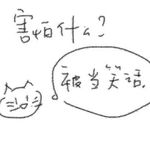 害怕什么？
被当笑话.